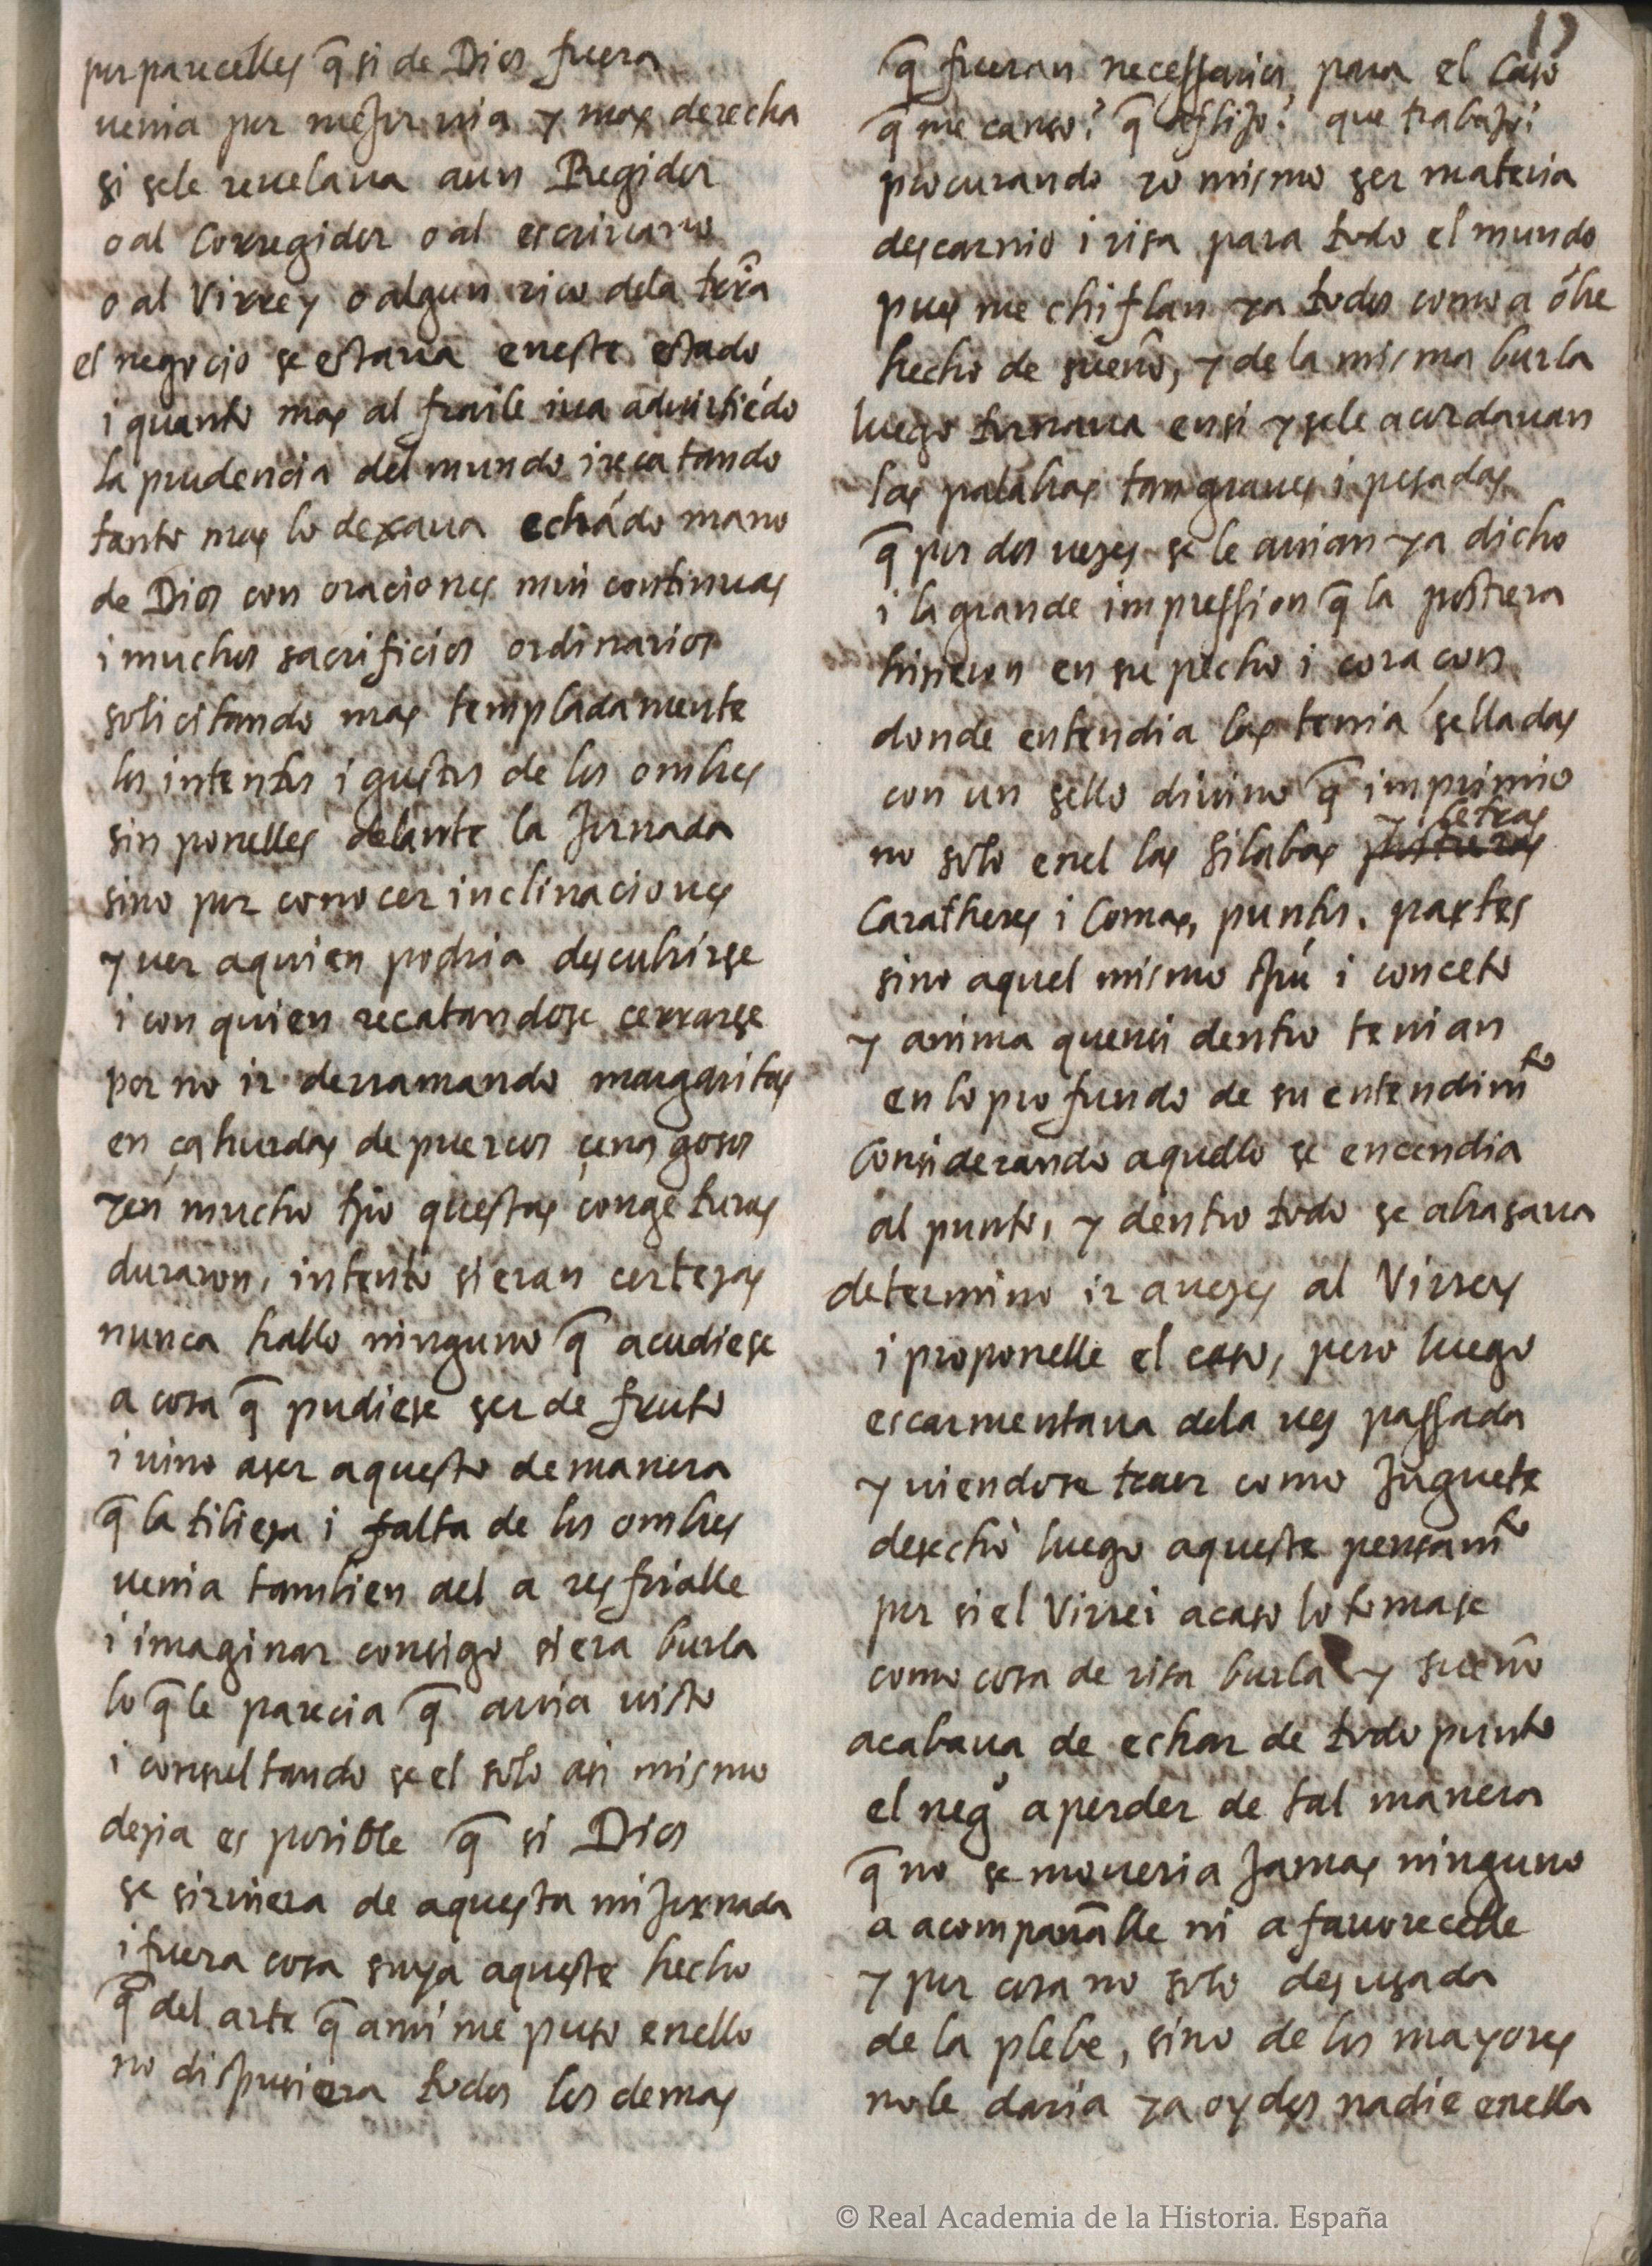 por parecelles q̃ si de Dios fuera
uenia por mejor uia y mas derecha
si sele reuelaua aun Regidor
o al Corregidor o al escriuano
o al Virrey o algun rico dela trr̃a
el negocio se estaua eneste estado
i quanto mas al fraile iua aduirtiẽdo
la prudencia del mundo i recatando
tanto mas lo dexaua echãdo mano
de Dios con oraciones mui continuas
i muchos sacrificios ordinarios
solicitando mas templadamente
los intentos i gustos de los ombres
sin ponelles delante la Jornada
sino por conocer inclinaciones
y uer aquien podria descubrirse
i con quien recatandose cerrarse
por no ir derramando margaritas
en çahurdas de puercos çenagosos
y en mucho tp̃o questas congeturas
duraron, intento si eran certezas
nunca hallo ninguno q̃ acudiese
a cosa q̃ pudiese ser de fruto
i uino aser aquesto de manera
q̃ la tibieza i falta de los ombres
uenia tambien ael a resfrialle
i imaginar consigo si era burla
lo q̃ le parecia q̃ auia uisto
i consultando se el solo asi mismo
dezia es posible q̃ si Dios
se siruiera de aquesta mi Jornada
i fuera cosa suya aqueste hecho
q̃ del arte q̃ ami me puso enello
no dispusiera todos los demas
19
q̃ fueran necessarios para el Caso
q̃ me canso? q̃ aflijo? que trabajo?
procurando yo mismo ser materia
descarnio i risa para todo el mundo
pues me chiflan ya todos como a õbre
hecho de sueño, y de la misma burla
luego tornaua ensi y sele acordauan
las palabras tan graues i pesadas
q̃ por dos uezes se le auian ya dicho
i la grande impression q̃ la postrera
hisieron en su pecho i coraçon
donde entendia las tenia selladas
con un sello diuino q̃ imprimio
y letras
no solo enel las silabas posturas
Caratheres i Comas, puntos, partes
sino aquel mismo spũ i conceto
y anima quensi dentro tenian
en lo profundo de su entendimto
Considerando aquello se encendia
al punto, y dentro todo se abrasaua
determino ir auezes al Virrey
i proponelle el caso, pero luego
escarmentaua dela uez passada
y uiendose traer como Juguete
desechò luego aqueste pensamto
por si el Virrei acaso lo tomase
como cosa de risa burla y sueño
acabaua de echar de todo punto
el nego a perder de tal manera
q̃ no se moueria Jamas ninguno
a acompañalle ni a fauorecelle
y por cosa no solo desusada
de la plebe, sino de los mayores
no le daria ya oydos nadie enella
© Real Academia de la Historia. España